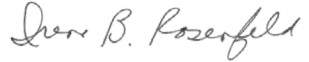 Irene B. Rosenfeld